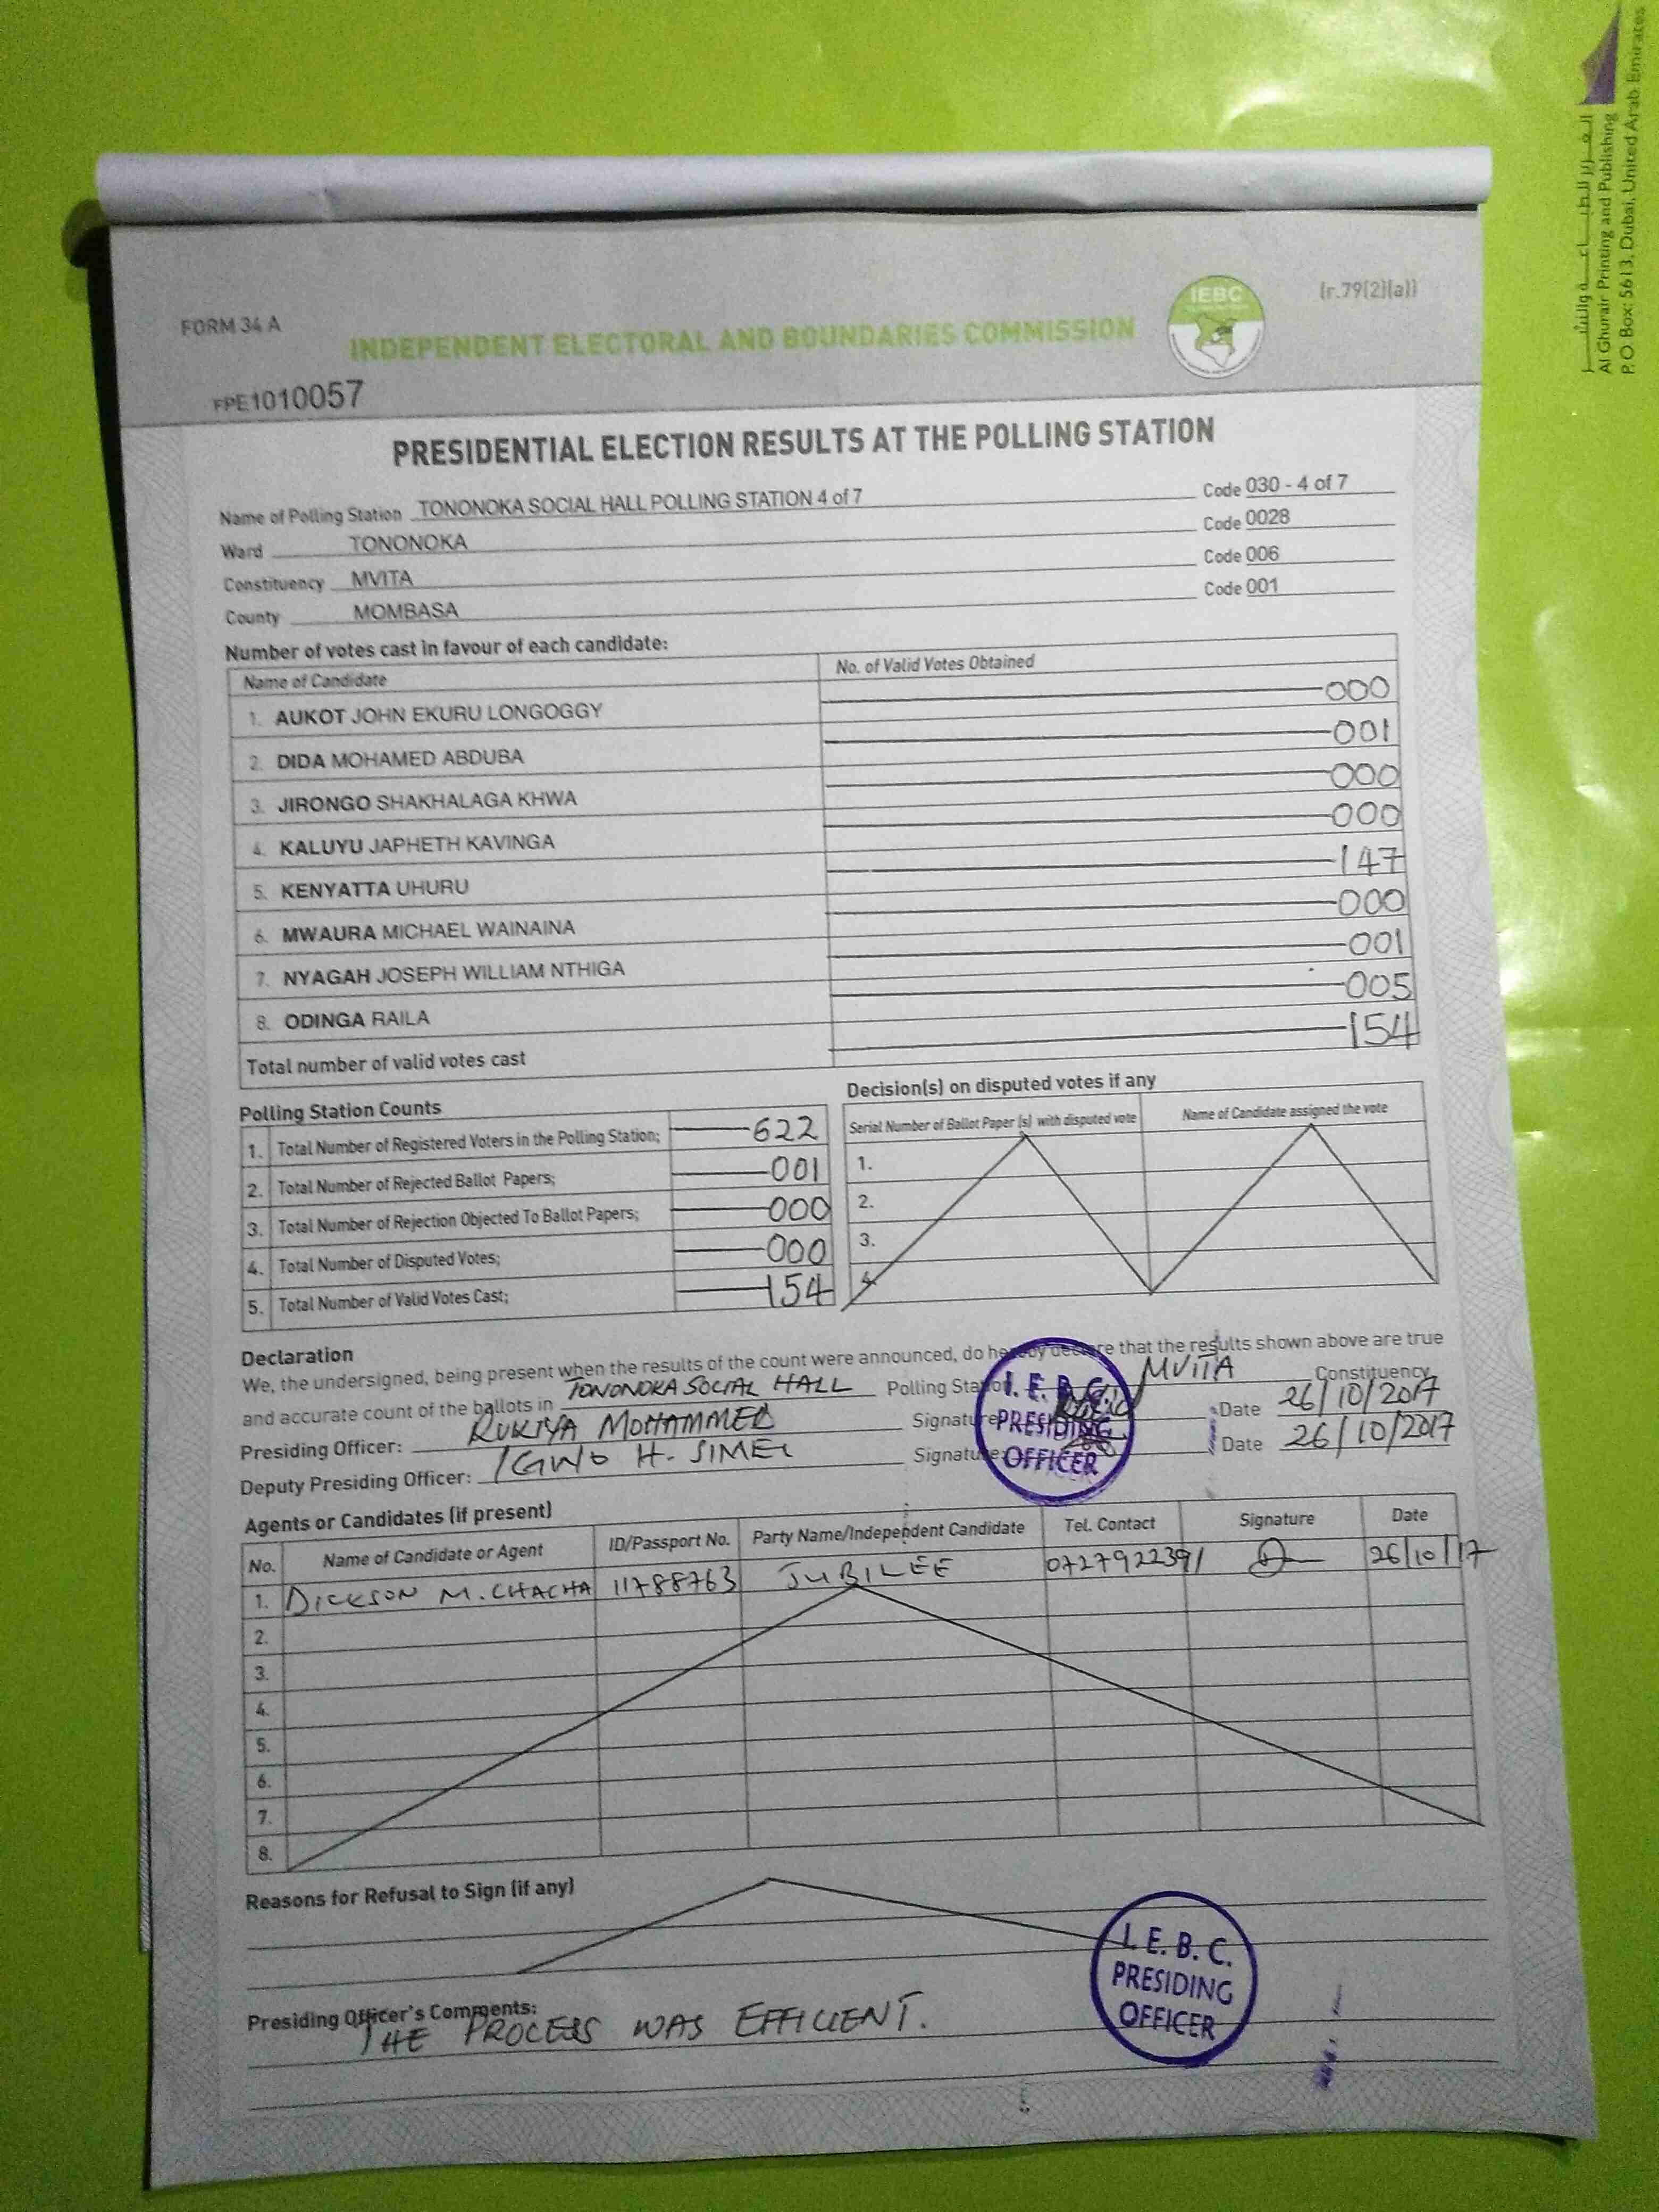 الغرير للطباعة والنشر
Al Ghurair Printing and Publishing
P.O. Box: 5613, Dubai, United Arab Emirates
FORM 34 A
(r.79(2)(a))
IEBC
INDEPENDENT ELECTORAL AND BOUNDARIES COMMISSION
FPE1010057
PRESIDENTIAL ELECTION RESULTS AT THE POLLING STATION
Name of Polling Station TONONOKA SOCIAL HALL POLLING STATION 4 of 7 Code 030 - 4 of 7
Ward TONONOKA Code 0028
Constituency MVITA Code 006
County MOMBASA Code 001
Number of votes cast in favour of each candidate:
Name of Candidate No. of Valid Votes Obtained
1. AUKOT JOHN EKURU LONGOGGY 000
2. DIDA MOHAMED ABDUBA 001
3. JIRONGO SHAKHALAGA KHWA 000
4. KALUYU JAPHETH KAVINGA 000
5. KENYATTA UHURU 147
6. MWAURA MICHAEL WAINAINA 000
7. NYAGAH JOSEPH WILLIAM NTHIGA 001
8. ODINGA RAILA 005
Total number of valid votes cast 154
Polling Station Counts
1. Total Number of Registered Voters in the Polling Station; 622
2. Total Number of Rejected Ballot Papers; 001
3. Total Number of Rejection Objected To Ballot Papers; 000
4. Total Number of Disputed Votes; 000
5. Total Number of Valid Votes Cast; 154
Decision(s) on disputed votes if any
Serial Number of Ballot Paper (s) with disputed vote Name of Candidate assigned the vote
1.
2.
3.
4.
Declaration
We, the undersigned, being present when the results of the count were announced, do hereby declare that the results shown above are true
and accurate count of the ballots in TONONOKA SOCIAL HALL Polling Station MVITA Constituency
Presiding Officer: RUKIYA MOHAMMED Signature Date 26/10/2017
Deputy Presiding Officer: H. Signature Date 26/10/2017
I. E. B. C.
PRESIDING
OFFICER
Agents or Candidates (if present)
No. Name of Candidate or Agent ID/Passport No. Party Name/Independent Candidate Tel. Contact Signature Date
1. DICKSON M. CHACHA 11788763 JUBILEE 0727922391 26/10/17
2.
3.
4.
5.
6.
7.
8.
Reasons for Refusal to Sign (if any)
I. E. B. C.
PRESIDING
OFFICER
Presiding Officer's Comments:
THE PROCESS WAS EFFICIENT.